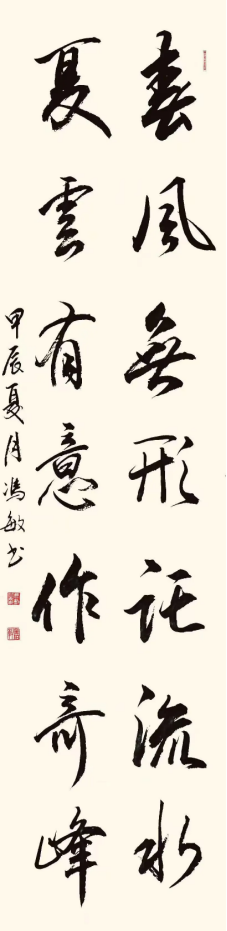 春風無形託流水
夏雲有意作奇峰
甲辰夏月馮敏書